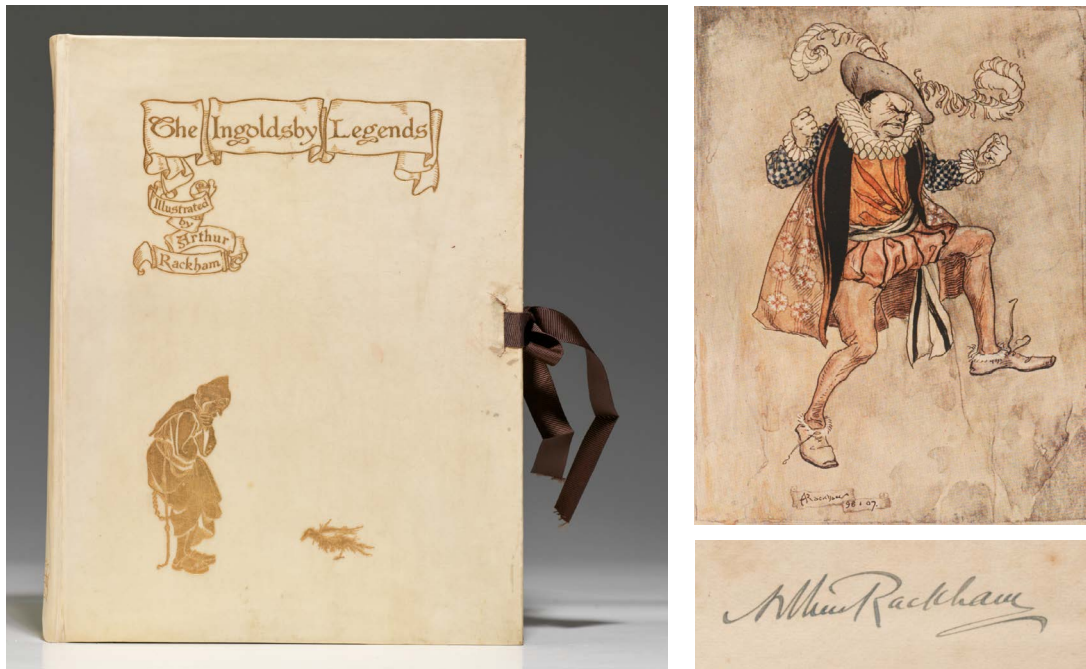 The Ingoldsby Legends
Illustrated
by
Arthur
Rackham
ARackham
98 • 07
Arthur Rackham